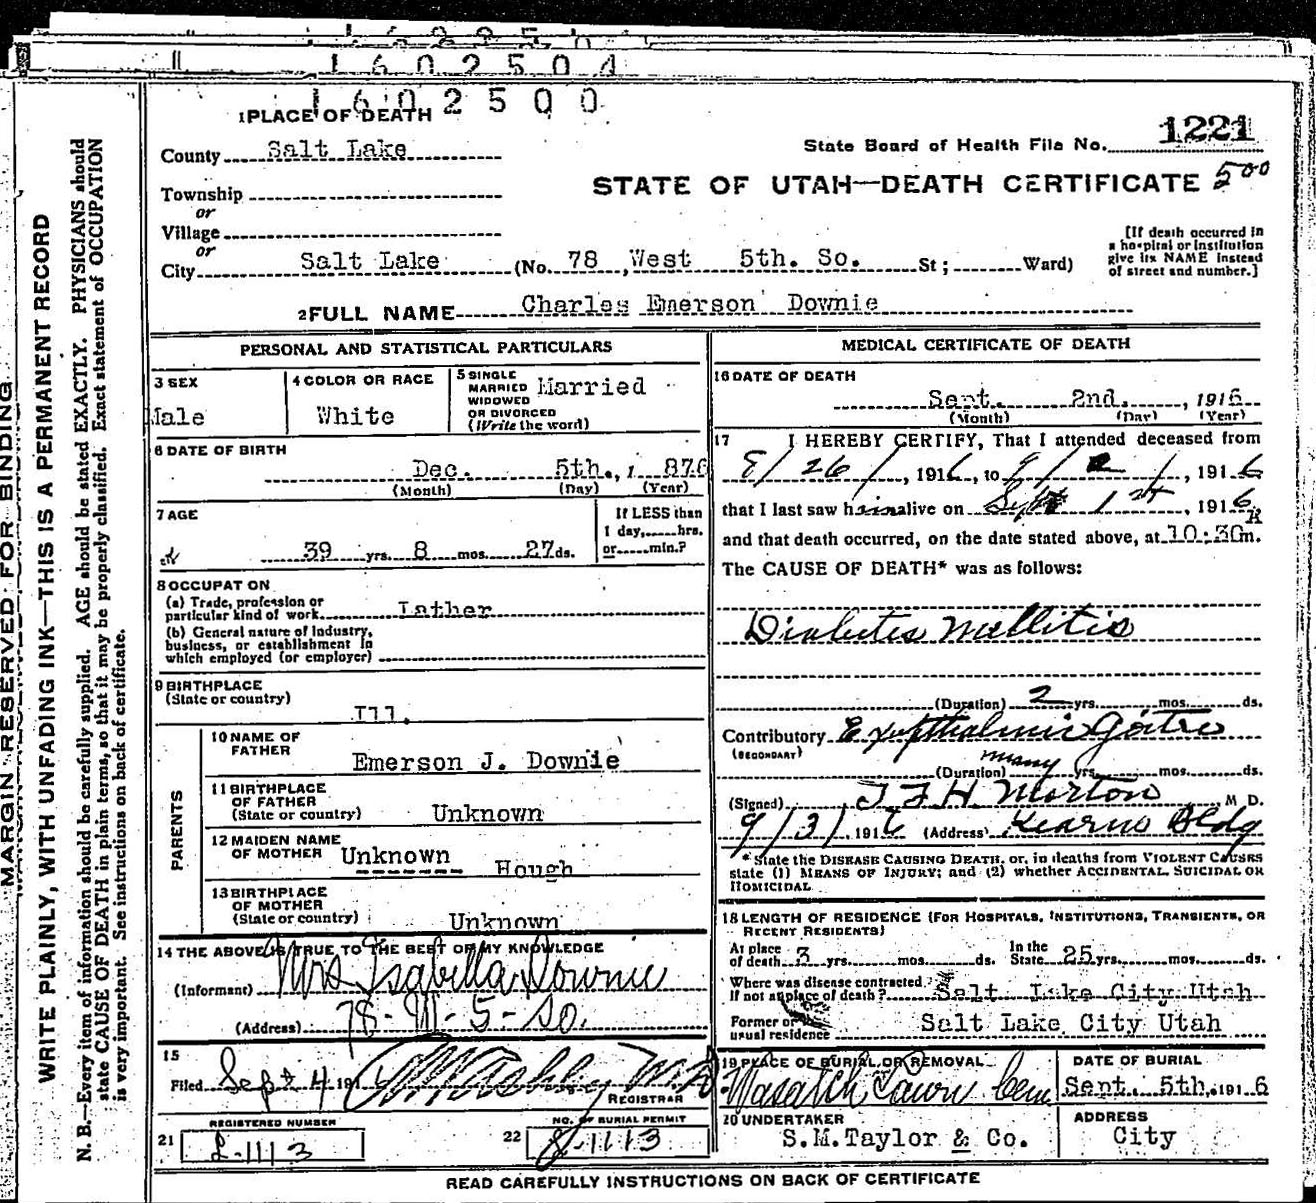 1602504
1602500
1 PLACE OF DEATH
1221
County Salt Lake
State Board of Health File No.
Township
STATE OF UTAH—DEATH CERTIFICATE 500
or
Village
or
City Salt Lake (No. 78, West 5th. So. St; Ward)
[If death occurred in
a hospital or institution
give its NAME instead
of street and number.]
2 FULL NAME Charles Emerson Downie
PERSONAL AND STATISTICAL PARTICULARS
3 SEX
Male
4 COLOR OR RACE
White
5 SINGLE
MARRIED
WIDOWED
OR DIVORCED
(Write the word)
Married
6 DATE OF BIRTH
Dec. 5th., 1876
(Month) (Day) (Year)
7 AGE
39 yrs. 8 mos. 27 ds.
If LESS than
1 day,......hrs.
or......min.?
8 OCCUPATION
(a) Trade, profession or
particular kind of work Lather
(b) General nature of Industry,
business, or establishment in
which employed (or employer)
9 BIRTHPLACE
(State or country)
Ill.
PARENTS
10 NAME OF
FATHER
Emerson J. Downie
11 BIRTHPLACE
OF FATHER
(State or country) Unknown
12 MAIDEN NAME
OF MOTHER Unknown
Hough
13 BIRTHPLACE
OF MOTHER
(State or country) Unknown
14 THE ABOVE IS TRUE TO THE BEST OF MY KNOWLEDGE
(Informant) Mrs Isabella Downie
(Address) 78-W-5-So.
15
Filed Sept 4 191
REGISTRAR
REGISTERED NUMBER
21
NO. OF BURIAL PERMIT
22
MEDICAL CERTIFICATE OF DEATH
16 DATE OF DEATH
Sept. 2nd. , 1916
(Month) (Day) (Year)
17 I HEREBY CERTIFY, That I attended deceased from
8/26/, 1916, to 9/2/, 1916
that I last saw him alive on Sept 1st, 1916,
and that death occurred, on the date stated above, at 10:30 m.
The CAUSE OF DEATH* was as follows:
Diabetes Mellitis
(Duration) 2 yrs. mos. ds.
Contributory Exopthalmic Goitre
(SECONDARY)
(Duration) many yrs. mos. ds.
(Signed) T F H Morton M D.
9/3/, 1916 (Address) Kearns Bldg
* State the DISEASE CAUSING DEATH, or, in deaths from VIOLENT CAUSES
state (1) MEANS OF INJURY; and (2) whether ACCIDENTAL, SUICIDAL OR
HOMICIDAL
18 LENGTH OF RESIDENCE (FOR HOSPITALS, INSTITUTIONS, TRANSIENTS, OR
RECENT RESIDENTS)
At place
of death 3 yrs. mos. ds.
In the
State 25 yrs. mos. ds.
Where was disease contracted,
If not at place of death? Salt Lake City Utah
Former or
usual residence Salt Lake City Utah
19 PLACE OF BURIAL OR REMOVAL
Wasatch Lawn Cem
DATE OF BURIAL
Sept. 5th, 1916
20 UNDERTAKER
S.M.Taylor & Co.
ADDRESS
City
READ CAREFULLY INSTRUCTIONS ON BACK OF CERTIFICATE
MARGIN RESERVED FOR BINDING
WRITE PLAINLY, WITH UNFADING INK—THIS IS A PERMANENT RECORD
N. B.—Every item of information should be carefully supplied. AGE should be stated EXACTLY. PHYSICIANS should
state CAUSE OF DEATH in plain terms, so that it may be properly classified. Exact statement of OCCUPATION
is very important. See instructions on back of certificate.